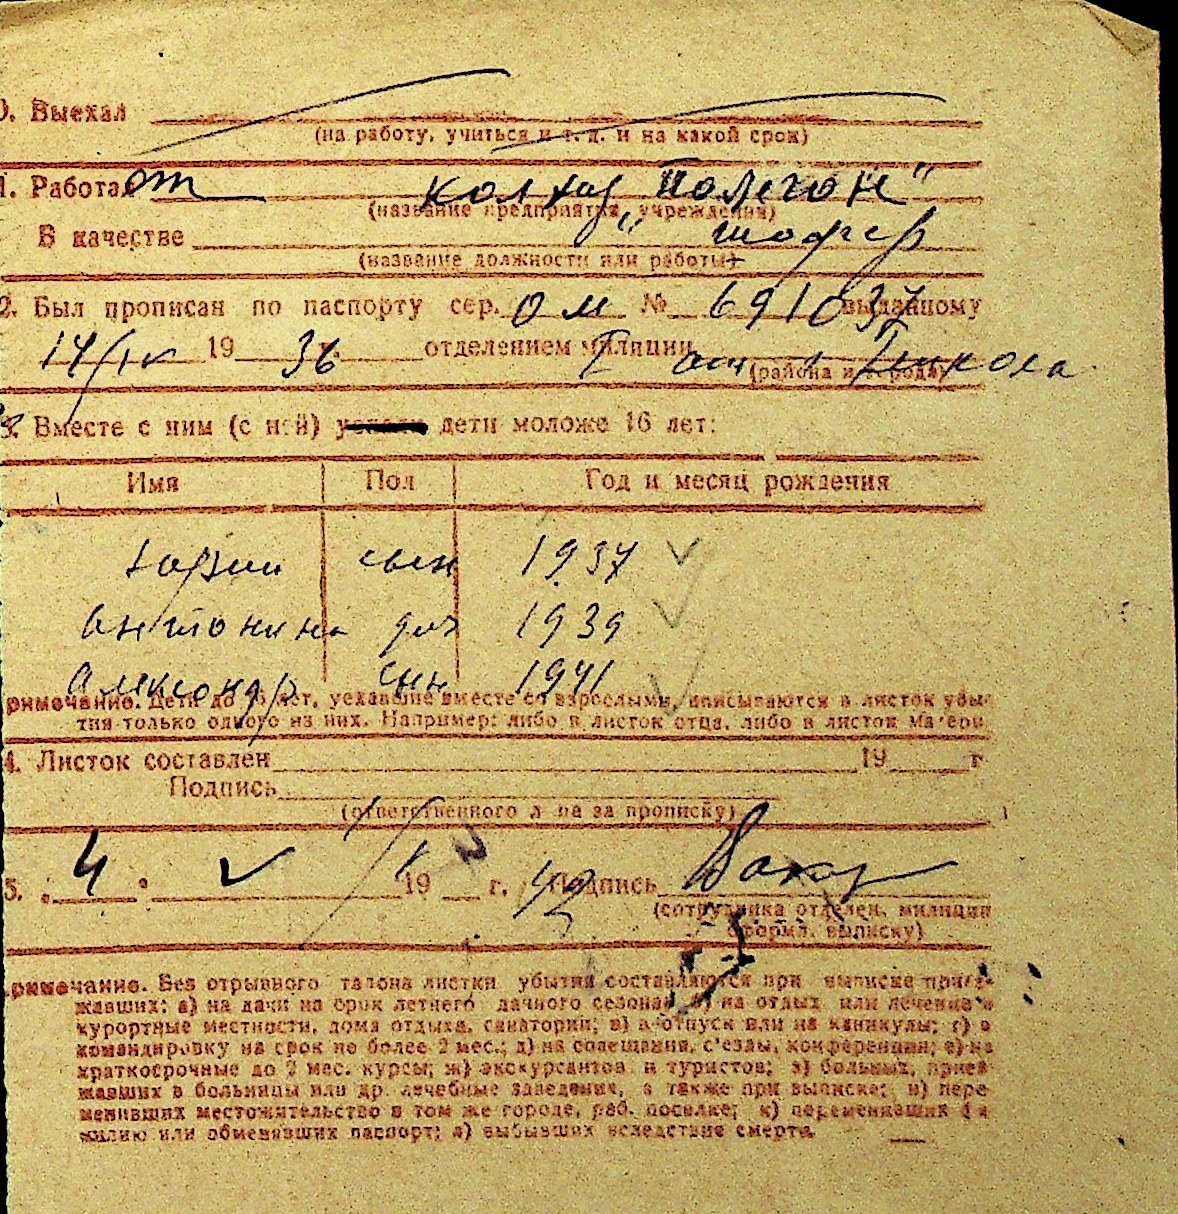 0. Выехал
(на работу, учиться и т. д. и на какой срок)
1. Работает колхоз „Полегон"
(название предприятия, учреждения)
В качестве шофер
(название должности или работы)
2. Был прописан по паспорту сер. ОМ № 691037 выданному
14/IV 19 36 отделением милиции I
(района и города)
3. Вместе с ним (с ней) дети моложе 16 лет:
Имя Пол Год и месяц рождения
Юрий сын 1937
Антонина доч 1939
Александр сын 1941
римечание. Дети до 16 лет, уехавшие вместе со взрослыми, вписываются в листок убы-
тия только одного из них. Например: либо в листок отца, либо в листок матери
4. Листок составлен 19 г
Подпись
(ответственного л-ца за прописку)
5. „4" V 19 42 г. Подпись
(сотрудника отделен. милиции
оформл. выписку)
римечание. Без отрывного талона листки убытия составляются при выписке приез-
жавших: а) на дачи на срок летнего дачного сезона; б) на отдых или лечение в
курортные местности, дома отдыха, санатории; в) в отпуск или на каникулы; г) в
командировку на срок не более 2 мес.; д) на совещания, с'езды, конференции; е) на
краткосрочные до 2 мес. курсы; ж) экскурсантов и туристов; з) больных, приез-
жавших в больницы или др. лечебные заведения, а также при выписке; и) пере
менивших местожительство в том же городе, раб. поселке; к) переменивших фа
милию или обменявших паспорт; л) выбывших вследствие смерти.